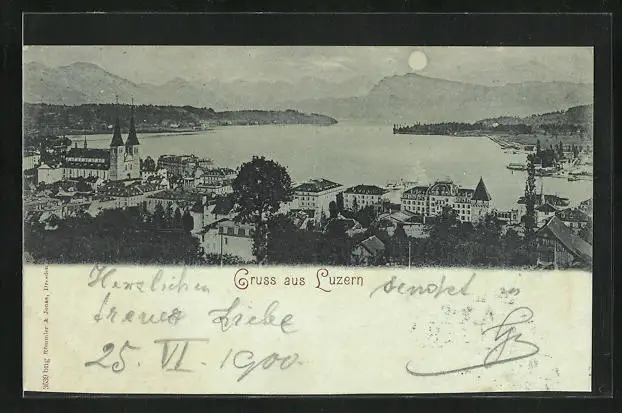 Gruss aus Luzern
Herzlichen sendet in
treuer Liebe
25. VI. 1900.
3639 htg Römmler & Jonas, Dresden